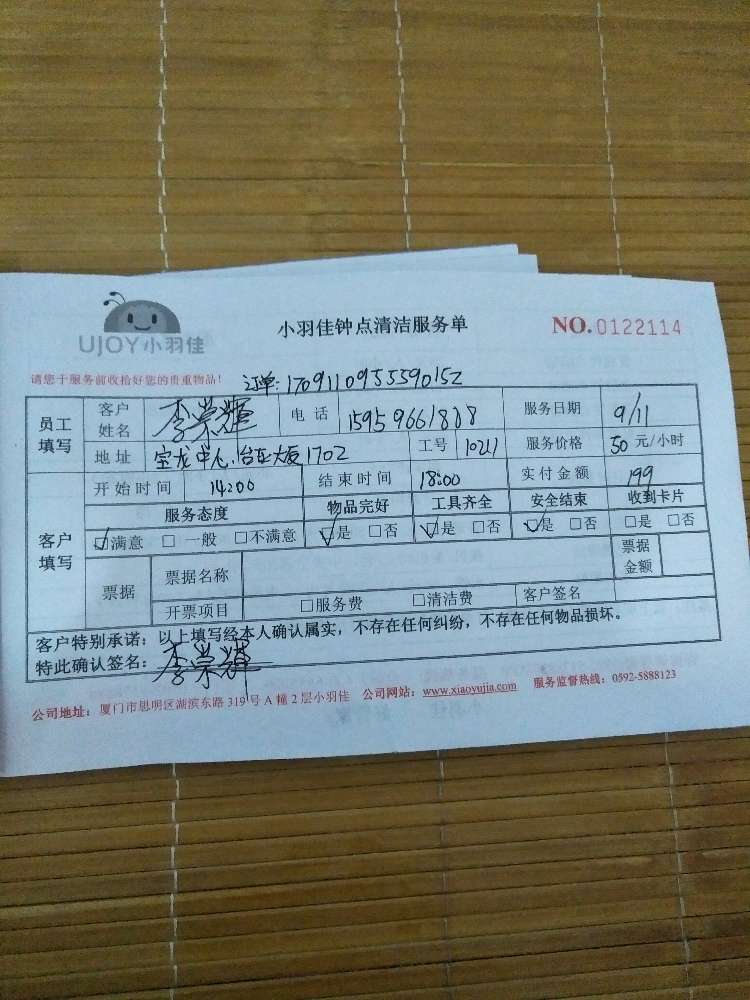 UJOY小羽佳
小羽佳钟点清洁服务单
NO.0122114
请您于服务前收拾好您的贵重物品!
订单:1709110955590152
员工填写 客户姓名 李荣辉 电话 15959661888 服务日期 9/11
地址 宝龙中心,台亚大厦1702 工号 10211 服务价格 50元/小时
客户填写 开始时间 14:00 结束时间 18:00 实付金额 199
服务态度 物品完好 工具齐全 安全结束 收到卡片
☑满意 □一般 □不满意 ☑是 □否 ☑是 □否 ☑是 □否 □是 □否
票据 票据名称 票据金额
开票项目 □服务费 □清洁费 客户签名
客户特别承诺:以上填写经本人确认属实,不存在任何纠纷,不存在任何物品损坏。
特此确认签名:李荣辉
公司地址:厦门市思明区湖滨东路319号A幢2层小羽佳 公司网站:www.xiaoyujia.com 服务监督热线:0592-5888123